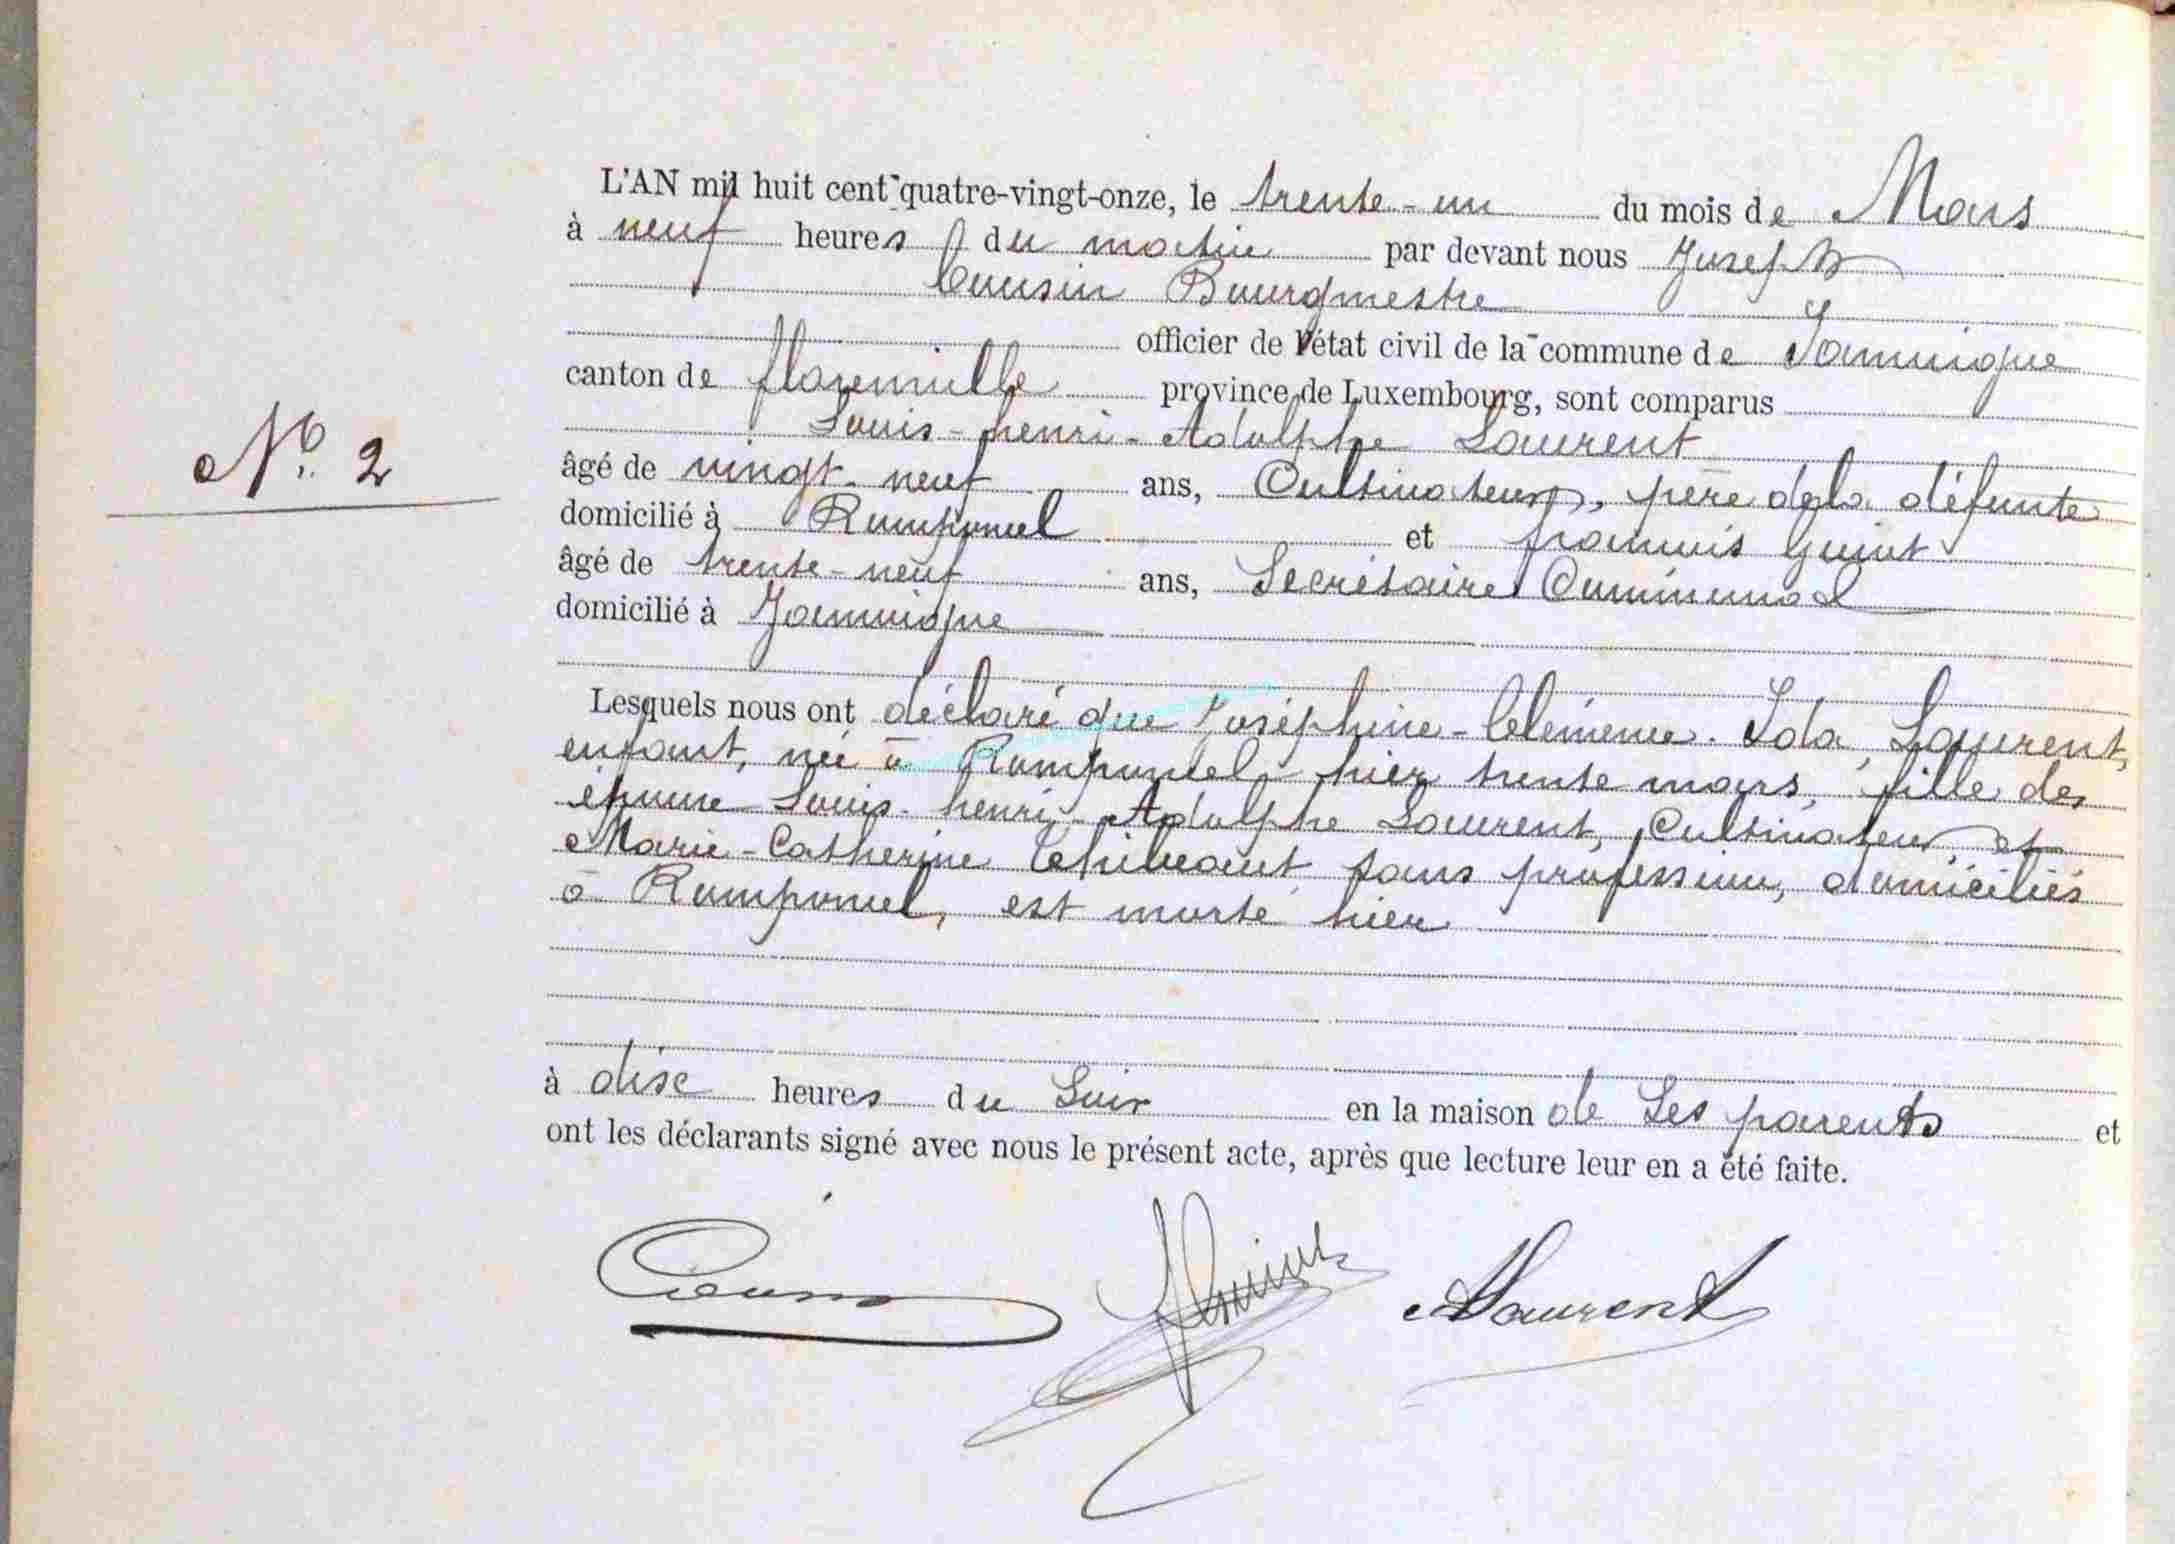 L'AN mil huit cent quatre-vingt-onze, le trente-un du mois de Mars
à neuf heures du matin par devant nous Joseph
Cousin Bourgmestre
officier de l'état civil de la commune de Jamoigne
canton de florenville province de Luxembourg, sont comparus
Louis-henri-Adolphe Laurent
N° 2
âgé de vingt-neuf ans, Cultivateur, père de la défunte
domicilié à Romponcel et françois Guiot
âgé de trente-neuf ans, Secrétaire Communal
domicilié à Jamoigne
Lesquels nous ont déclaré que Joséphine-Clémence-Ida, Laurent,
enfant, née à Romponcel hier trente mars, fille des
époux Louis-henri-Adolphe Laurent, Cultivateur et
Marie-Catherine Thibeaut sans profession, domiciliés
à Romponcel, est morte hier
à dise heures du Soir en la maison de Ses parents et
ont les déclarants signé avec nous le présent acte, après que lecture leur en a été faite.
Cousin Guiot ALaurent